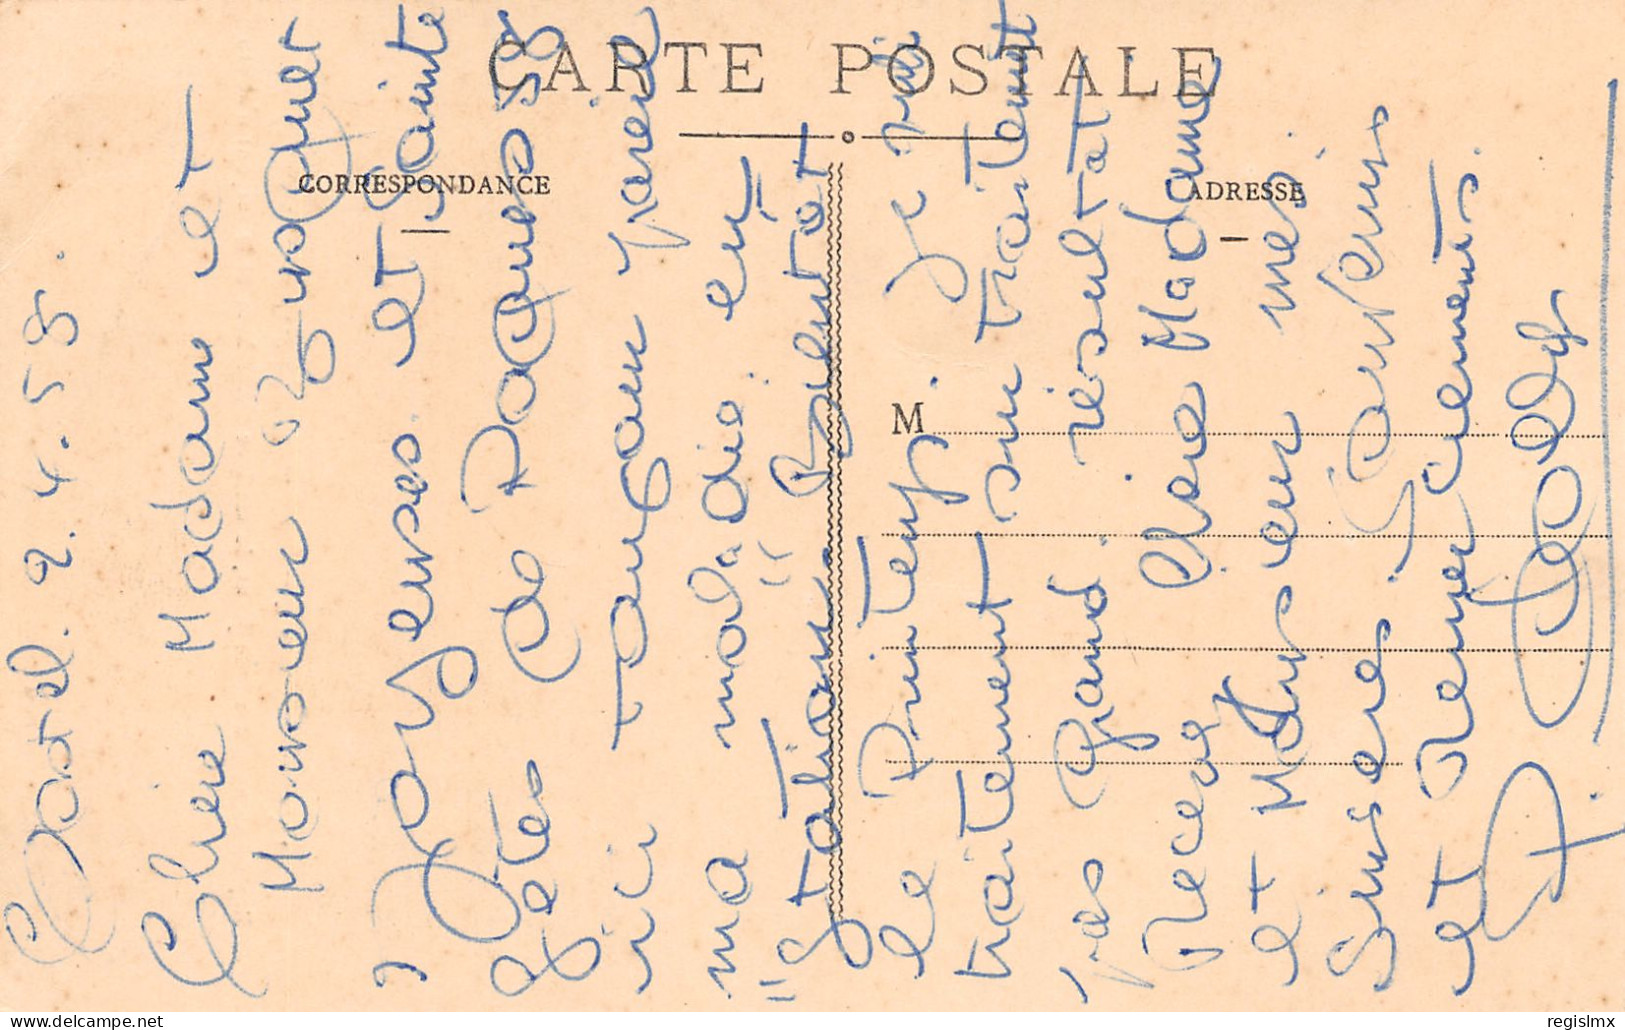 CARTE POSTALE
CORRESPONDANCE
ADRESSE
M
2.4.58.
Chère Madame et
Monsieur
Joyeuses et Sainte
fêtes de Pâques
ici toujours pareil
ma maladie est
"Stationnaire" Bientôt
le Printemps. Je suis
traitement sur traitement
pas Grand résultat
Recevez Chère Madame
et Monsieur mes
Sincères Souvenirs
et Remerciements.
regislmx